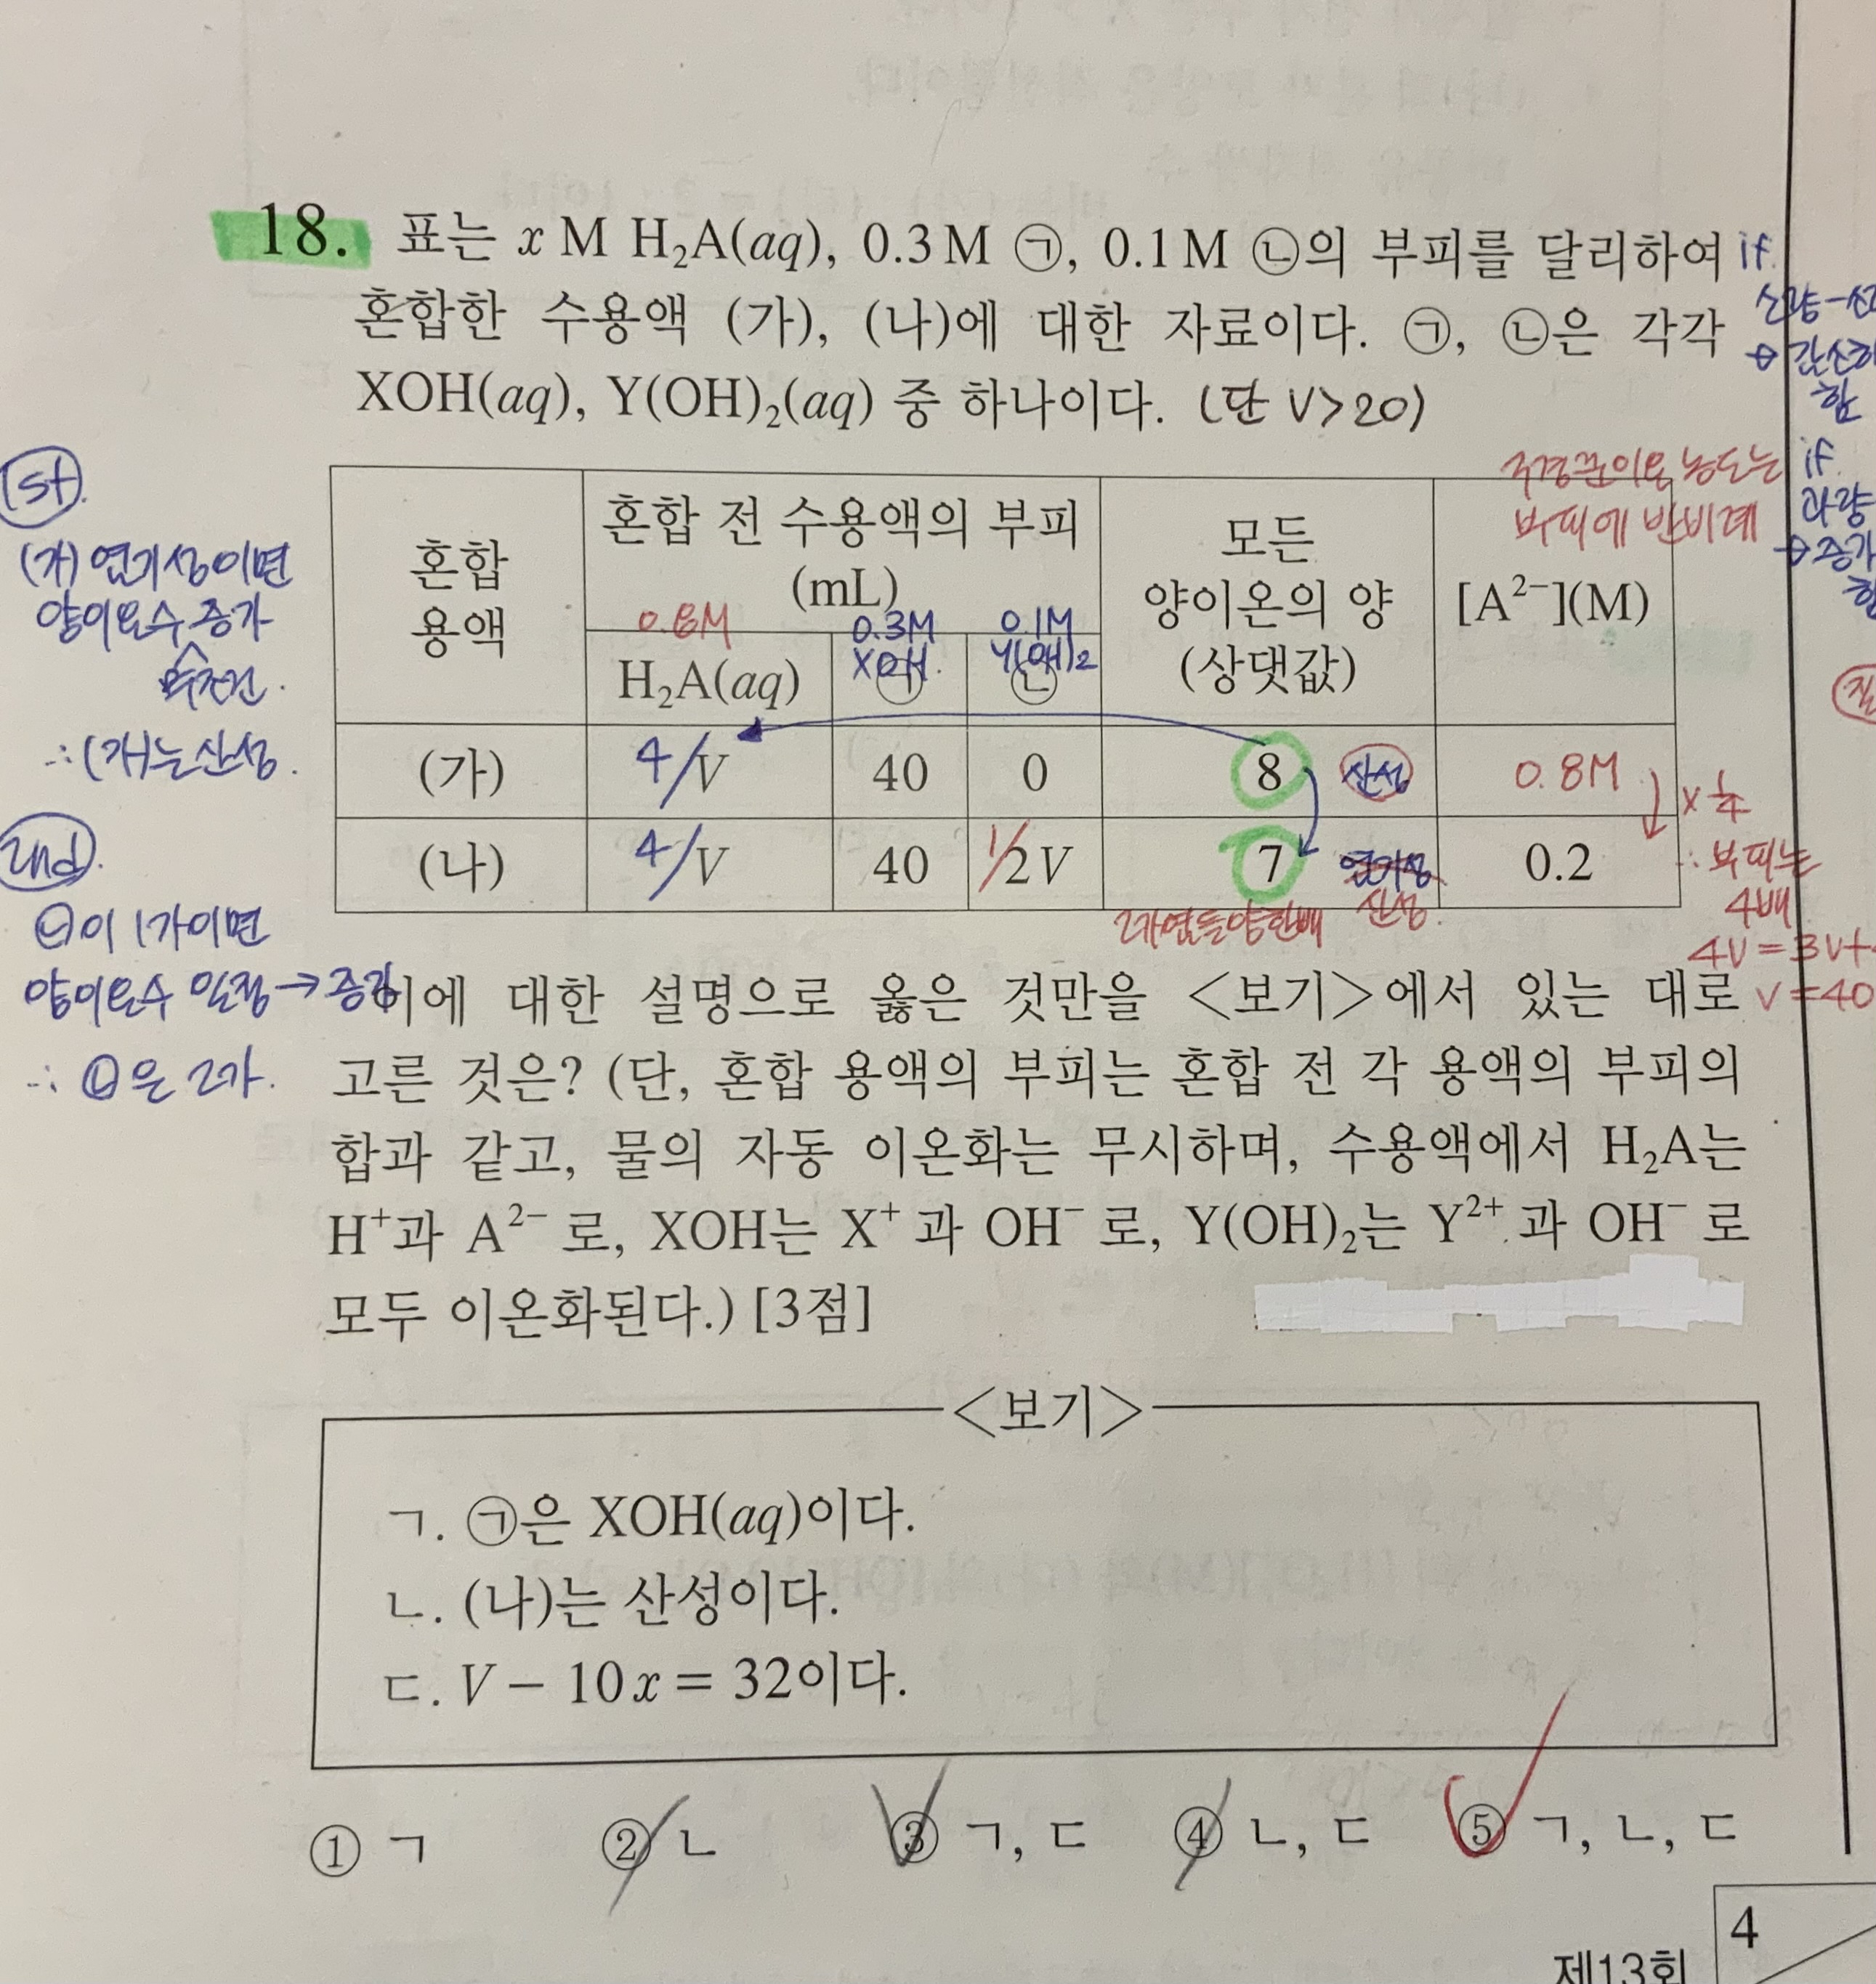 18. 표는 x M H₂A(aq), 0.3 M ㉠, 0.1 M ㉡의 부피를 달리하여
혼합한 수용액 (가), (나)에 대한 자료이다. ㉠, ㉡은 각각
XOH(aq), Y(OH)₂(aq) 중 하나이다. (단 V>20)
if
if
과량
1st.
(가) 염기성이면
양이온수 증가
∴ (가)는 산성.
2nd.
㉡이 1가이면
양이온수 일정→증가
∴ ㉡은 2가.
농도는
부피에 반비례
혼합 용액
혼합 전 수용액의 부피 (mL)
모든 양이온의 양 (상댓값)
[A²⁻](M)
0.8M
0.3M XOH
0.1M Y(OH)₂
H₂A(aq) ㉠ ㉡
(가) 4/V 40 0 8 산성 0.8M
×1/4
(나) 4/V 40 1/2V 7 염기성 산성. 0.2
∴ 부피는
4배
4V=3V+
V=40
이에 대한 설명으로 옳은 것만을 <보기>에서 있는 대로
고른 것은? (단, 혼합 용액의 부피는 혼합 전 각 용액의 부피의
합과 같고, 물의 자동 이온화는 무시하며, 수용액에서 H₂A는
H⁺과 A²⁻로, XOH는 X⁺과 OH⁻로, Y(OH)₂는 Y²⁺과 OH⁻로
모두 이온화된다.) [3점]
<보기>
ㄱ. ㉠은 XOH(aq)이다.
ㄴ. (나)는 산성이다.
ㄷ. V − 10x = 32이다.
① ㄱ ② ㄴ ③ ㄱ, ㄷ ④ ㄴ, ㄷ ⑤ ㄱ, ㄴ, ㄷ
4
제13회